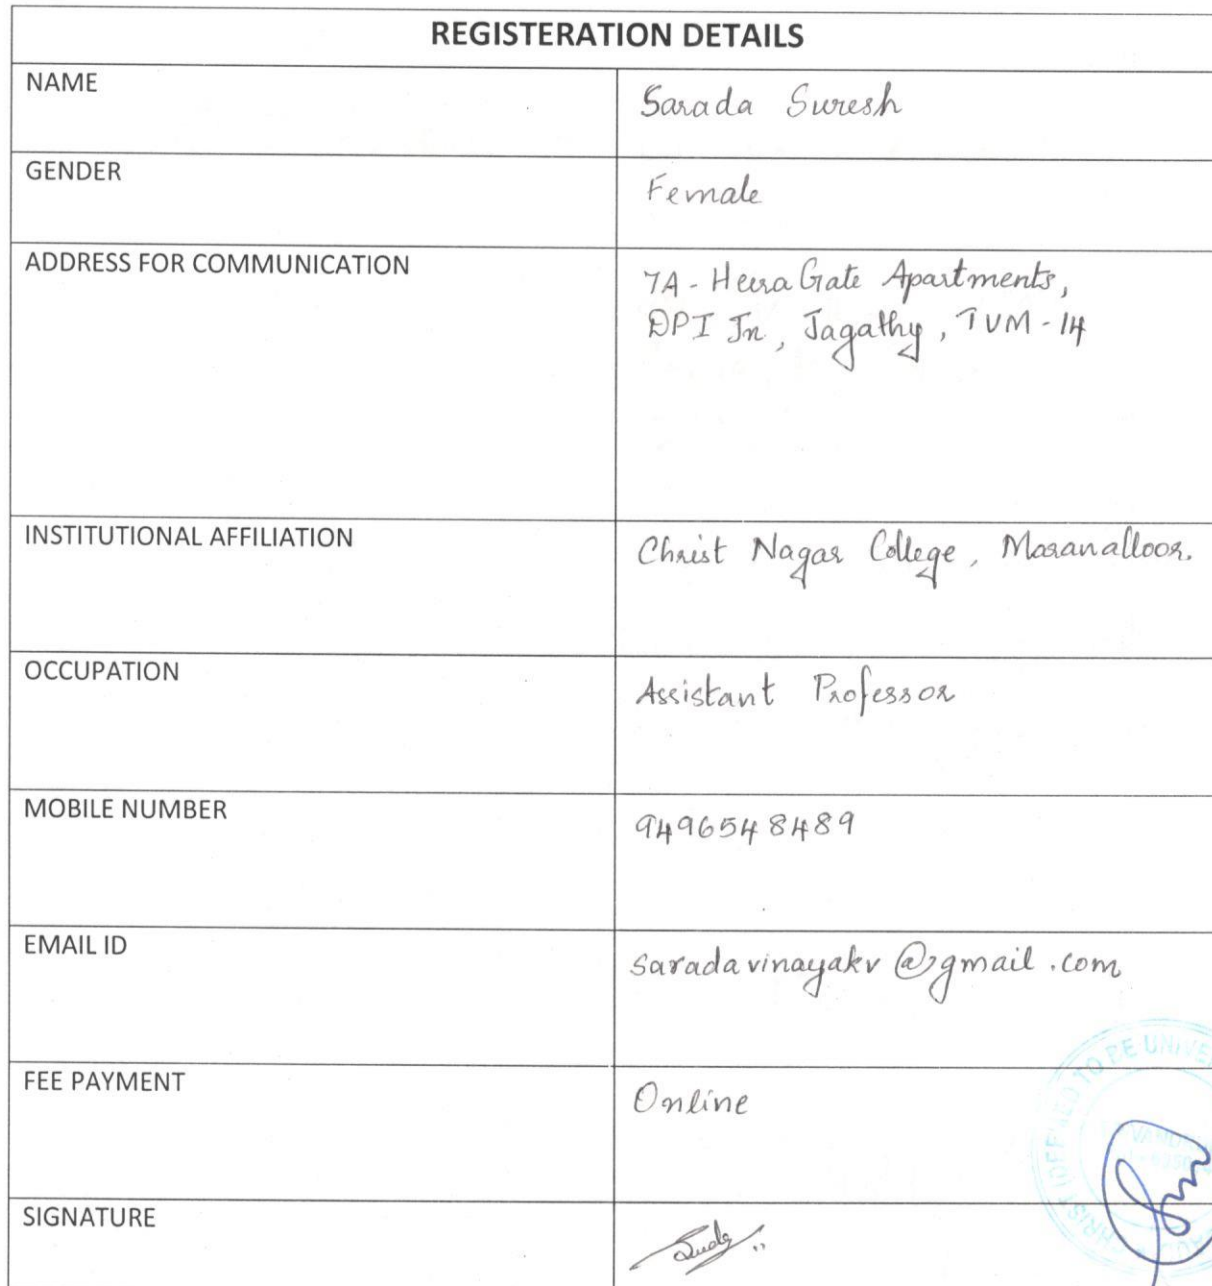 REGISTERATION DETAILS
NAME
Sarada Suresh
GENDER
Female
ADDRESS FOR COMMUNICATION
7A - Heera Gate Apartments,
DPI Jn, Jagathy, TVM - 14
INSTITUTIONAL AFFILIATION
Christ Nagar College, Maranalloor.
OCCUPATION
Assistant Professor
MOBILE NUMBER
9496548489
EMAIL ID
saradavinayakv@gmail.com
FEE PAYMENT
Online
TO BE UNIVE
SIGNATURE